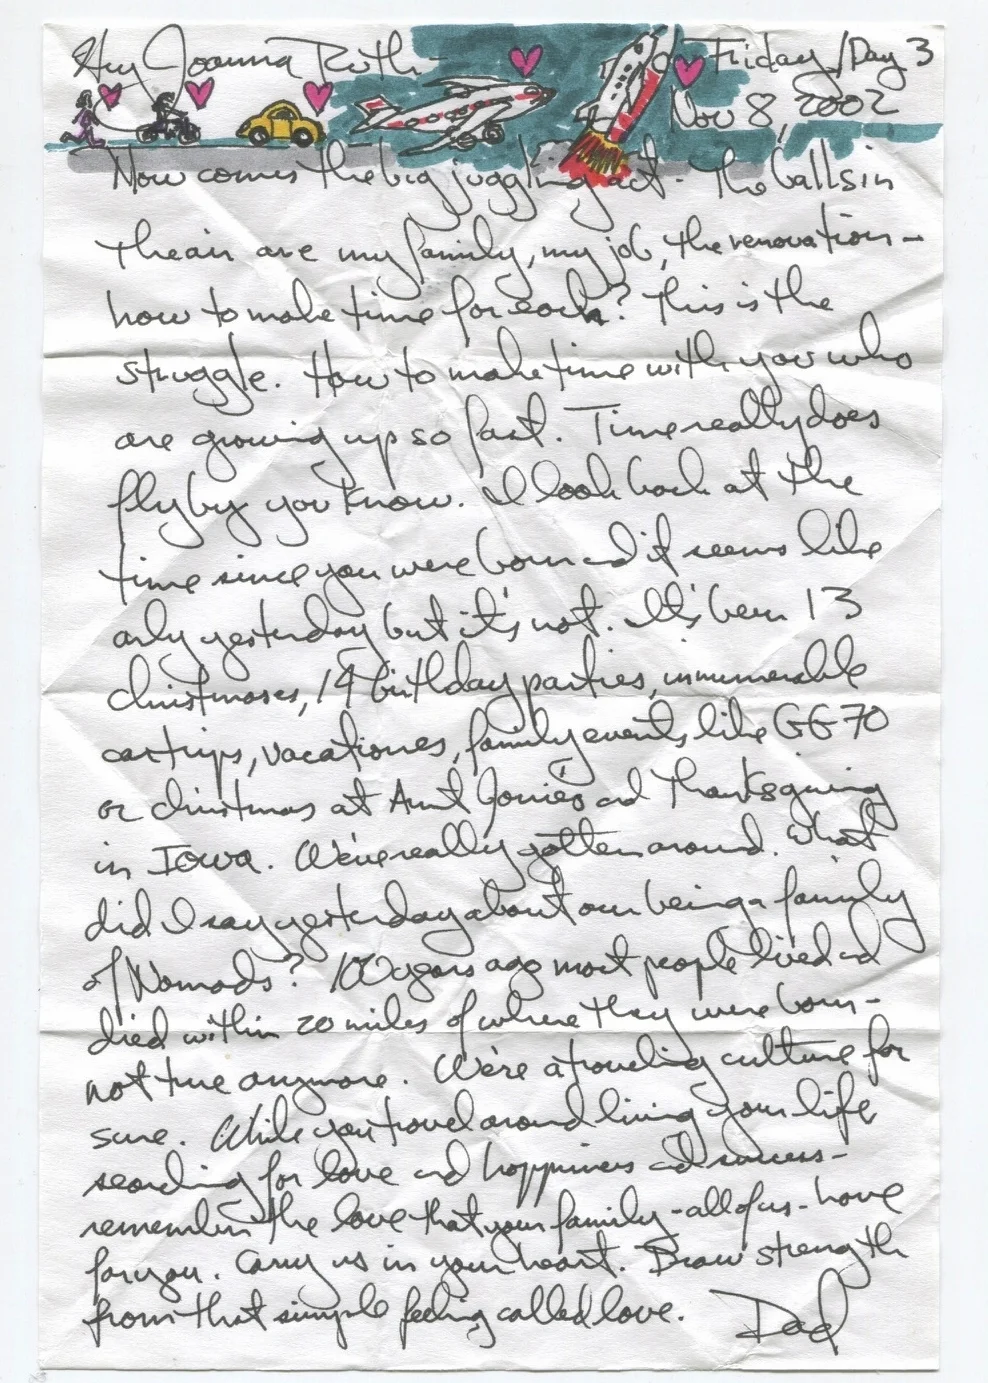 Hey Joanna Ruth-
Friday/Day 3
Nov 8, 2002
Now comes the big juggling act. The balls in
the air are my family, my job, the renovation-
how to make time for each? This is the
struggle. How to make time with you who
are growing up so fast. Time really does
fly by you know. I look back at the
time since you were born and it seems like
only yesterday but it's not. It's been 13
christmases, 14 birthday parties, innumerable
car trips, vacationes, family events like GG 70
or christmas at Aunt and Thanksgiving
in Iowa. We've really gotten around. What
did I say yesterday about our being a family
of Nomads? 100 years ago most people lived and
died within 20 miles of where they were born-
not true anymore. We're a traveling culture for
sure. While you travel around living your life
searching for love and happiness and success-
remember the love that your family-all of us-have
for you. Carry us in your heart. Draw strength
from that simple feeling called love. Dad